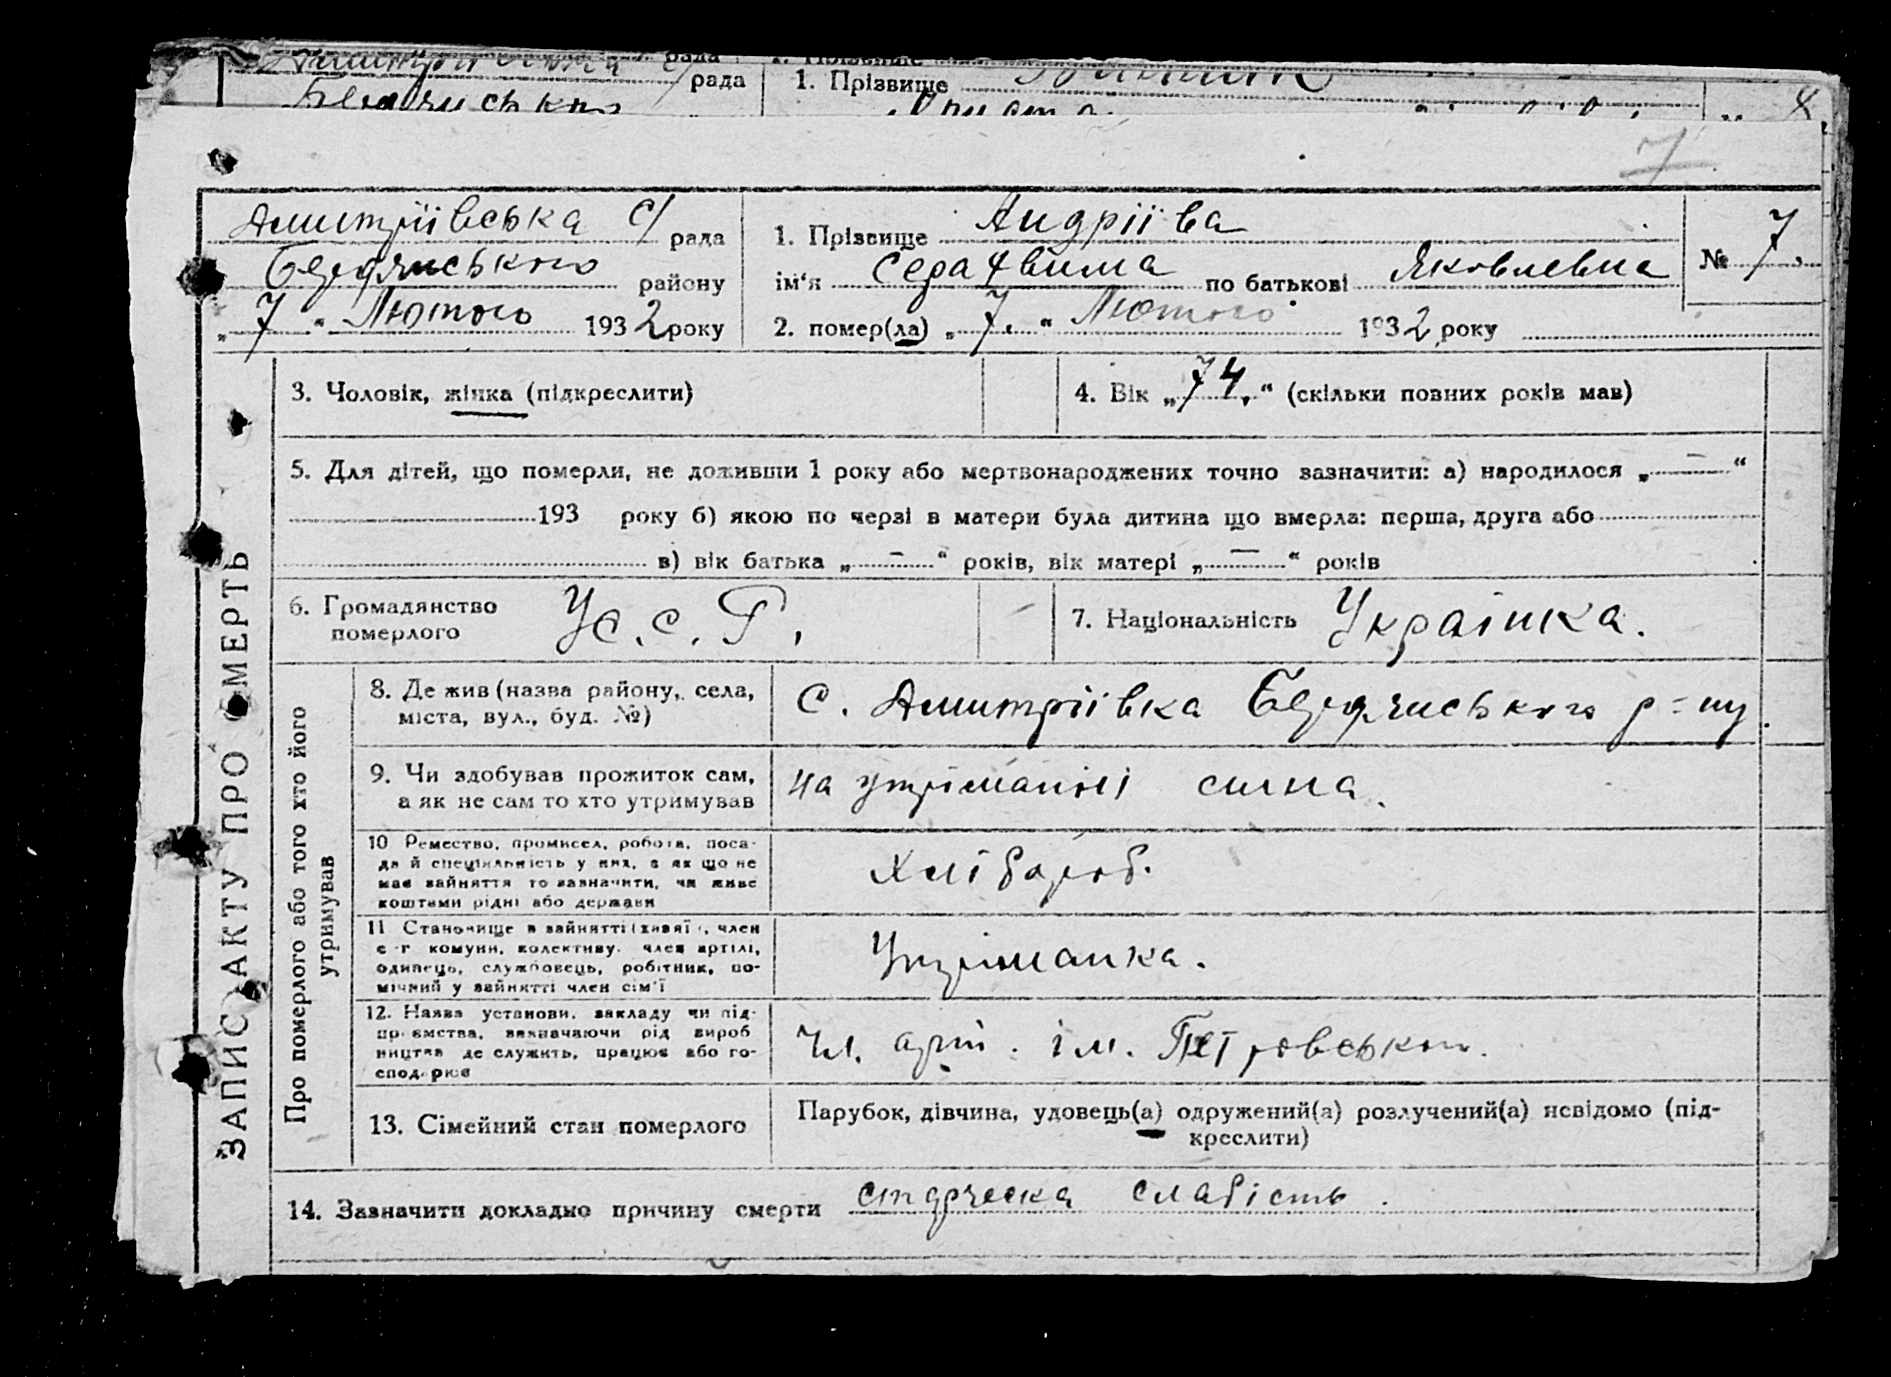 рада 1. Прізвище
7
Дмитріївська с/ рада
Бердянського району
„ 7 “ Лютого 1932 року
1. Прізвище Андріїва
ім'я Серафвима по батькові Яковлевна
2. помер(ла) „ 7. “ Лютого 1932 року
№ 7.
3. Чоловік, жінка (підкреслити)
4. Вік „ 74. “ (скільки повних років мав)
5. Для дітей, що померли, не доживши 1 року або мертвонароджених точно зазначити: а) народилося „ — “
193 року б) якою по черзі в матери була дитина що вмерла: перша, друга або
в) вік батька „ — “ років, вік матері „ — “ років
6. Громадянство
померлого
У.С.С.Р.
7. Національність Українка.
ЗАПИС АКТУ ПРО СМЕРТЬ
Про померлого або того хто його
утримував
8. Де жив (назва району, села,
міста, вул., буд. №)
С. Дмитріївка Бердянського р-ну.
9. Чи здобував прожиток сам,
а як не сам то хто утримував
на утриманні сина.
10 Ремество, промисел, робота, поса-
да й спеціяльність у них, а як що не
має зайняття то зазначити, чи живе
коштами рідні або держави
Хлібороб.
11 Становище в зайнятті (хазяї , член
с-г комуни, колективу, член артілі,
одинець, службовець, робітник, по-
мічний у зайнятті член сім'ї
Утриманка.
12. Назва установи, закладу чи під-
приємства, зазначаючи рід вироб
ництва де служить, працює або го-
сподарює
Чл. арт. ім. Петровського.
13. Сімейний стан померлого
Парубок, дівчина, удовець(а) одружений(а) розлучений(а) невідомо (під-
креслити)
14. Зазначити докладно причину смерти старческа слабість.